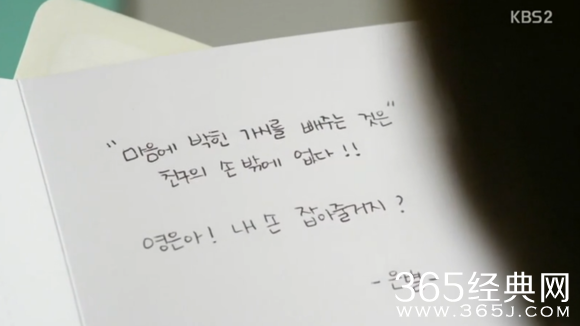 KBS2
"마음에 박힌 가시를 빼주는 것은"
친구의 손 밖에 없다 !!
영은아! 내 손 잡아줄거지?
365经典网
WWW.365J.COM